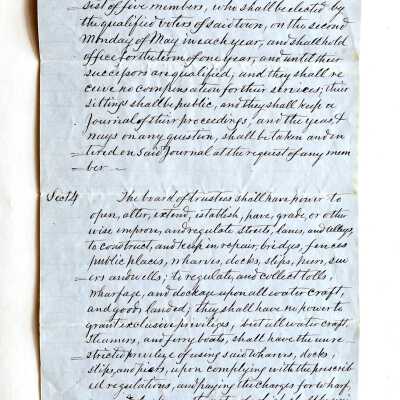 = sist of five members, who shall be elected by
the qualified voters of said town, on the second
Monday of May in each year, and shall hold
office for the term of one year, and until their
successors are qualified, and they shall re
ceive no compensation for their services; their
sittings shall be public, and they shall keep a
Journal of their proceedings, and the yeas, &
nays on any question, shall be taken and en
= tered on said Journal at the request of any mem
ber —
Sect 4 The board of trustees shall have power to
open, alter, extend, establish, pave, grade, or other
wise improve, and regulate streets, lanes, and alleys,
to construct, and keep in repair, bridges, fences
public places, wharves, docks, slips, piers, sew
= ers and wells; to regulate, and collect tolls,
wharfage, and dockage upon all water craft,
and goods landed; they shall have no power to
grant exclusive privileges, but all water craft,
Steamers, and ferry boats, shall have the unre
= stricted privilege of using said wharves, docks,
slips, and piers, upon complying with the prescrib
ed regulations, and paying the charges for wharf,